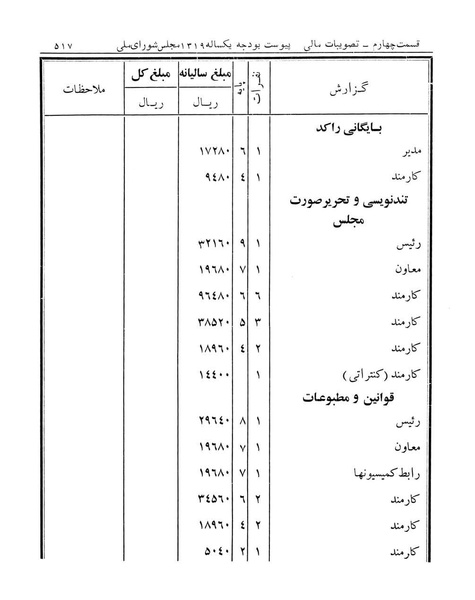 قسمت چهارم – تصویبات مالی پیوست بودجه یکساله ۱۳۱۹ مجلس شورای ملی ۵۱۷
گزارش نفرات پایه مبلغ سالیانه مبلغ کل ملاحظات
ریال ریال
بایگانی راکد
مدیر ۱ ۶ ۱۷۲۸۰
کارمند ۱ ٤ ۹٤۸۰
تندنویسی و تحریر صورت
مجلس
رئیس ۱ ۹ ۳۲۱۶۰
معاون ۱ ۷ ۱۹۶۸۰
کارمند ۶ ۶ ۹۶٤۸۰
کارمند ۳ ۵ ۳۸۵۲۰
کارمند ۲ ٤ ۱۸۹۶۰
کارمند (کنتراتی) ۱ ۱٤٤۰۰
قوانین و مطبوعات
رئیس ۱ ۸ ۲۹۶٤۰
معاون ۱ ۷ ۱۹۶۸۰
رابط کمیسیونها ۱ ۷ ۱۹۶۸۰
کارمند ۲ ۶ ۳٤۵۶۰
کارمند ۲ ٤ ۱۸۹۶۰
کارمند ۱ ۲ ۵۰٤۰